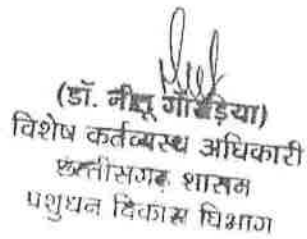 (डॉ. नीलू गोंडिया)
विशेष कर्तव्यस्थ अधिकारी
छत्तीसगढ़ शासन
पशुधन विकास विभाग